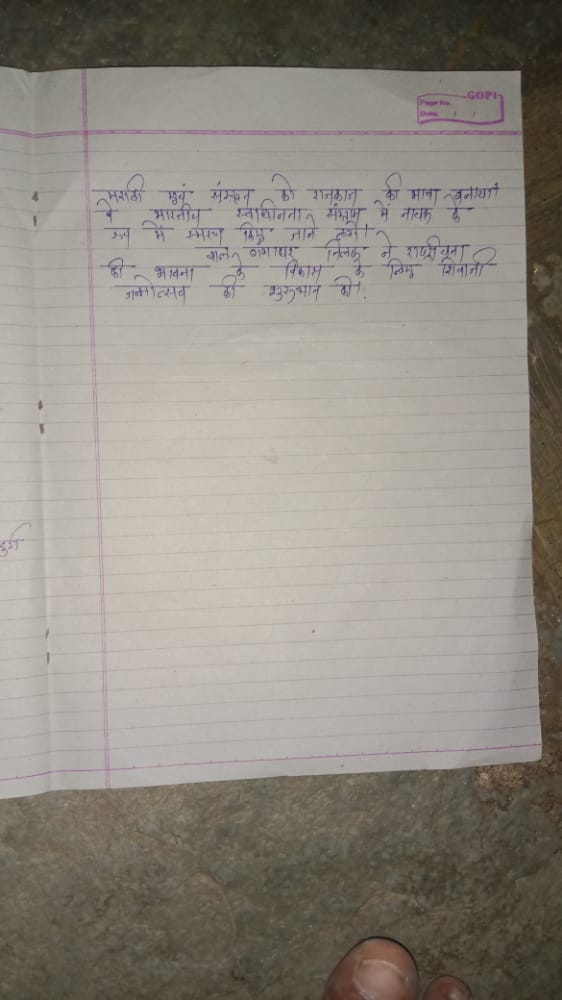 GOPI
Page No.
Date / /
मराठी एवं संस्कृत को राजकाज की भाषा बनाया।
वे भारतीय स्वाधीनता संग्राम में नायक के
रूप में स्मरण किए जाने लगे।
बाल गंगाधर तिलक ने राष्ट्रीयता
की भावना के विकास के लिए शिवाजी
जन्मोत्सव की शुरुआत की।
दुर्ग